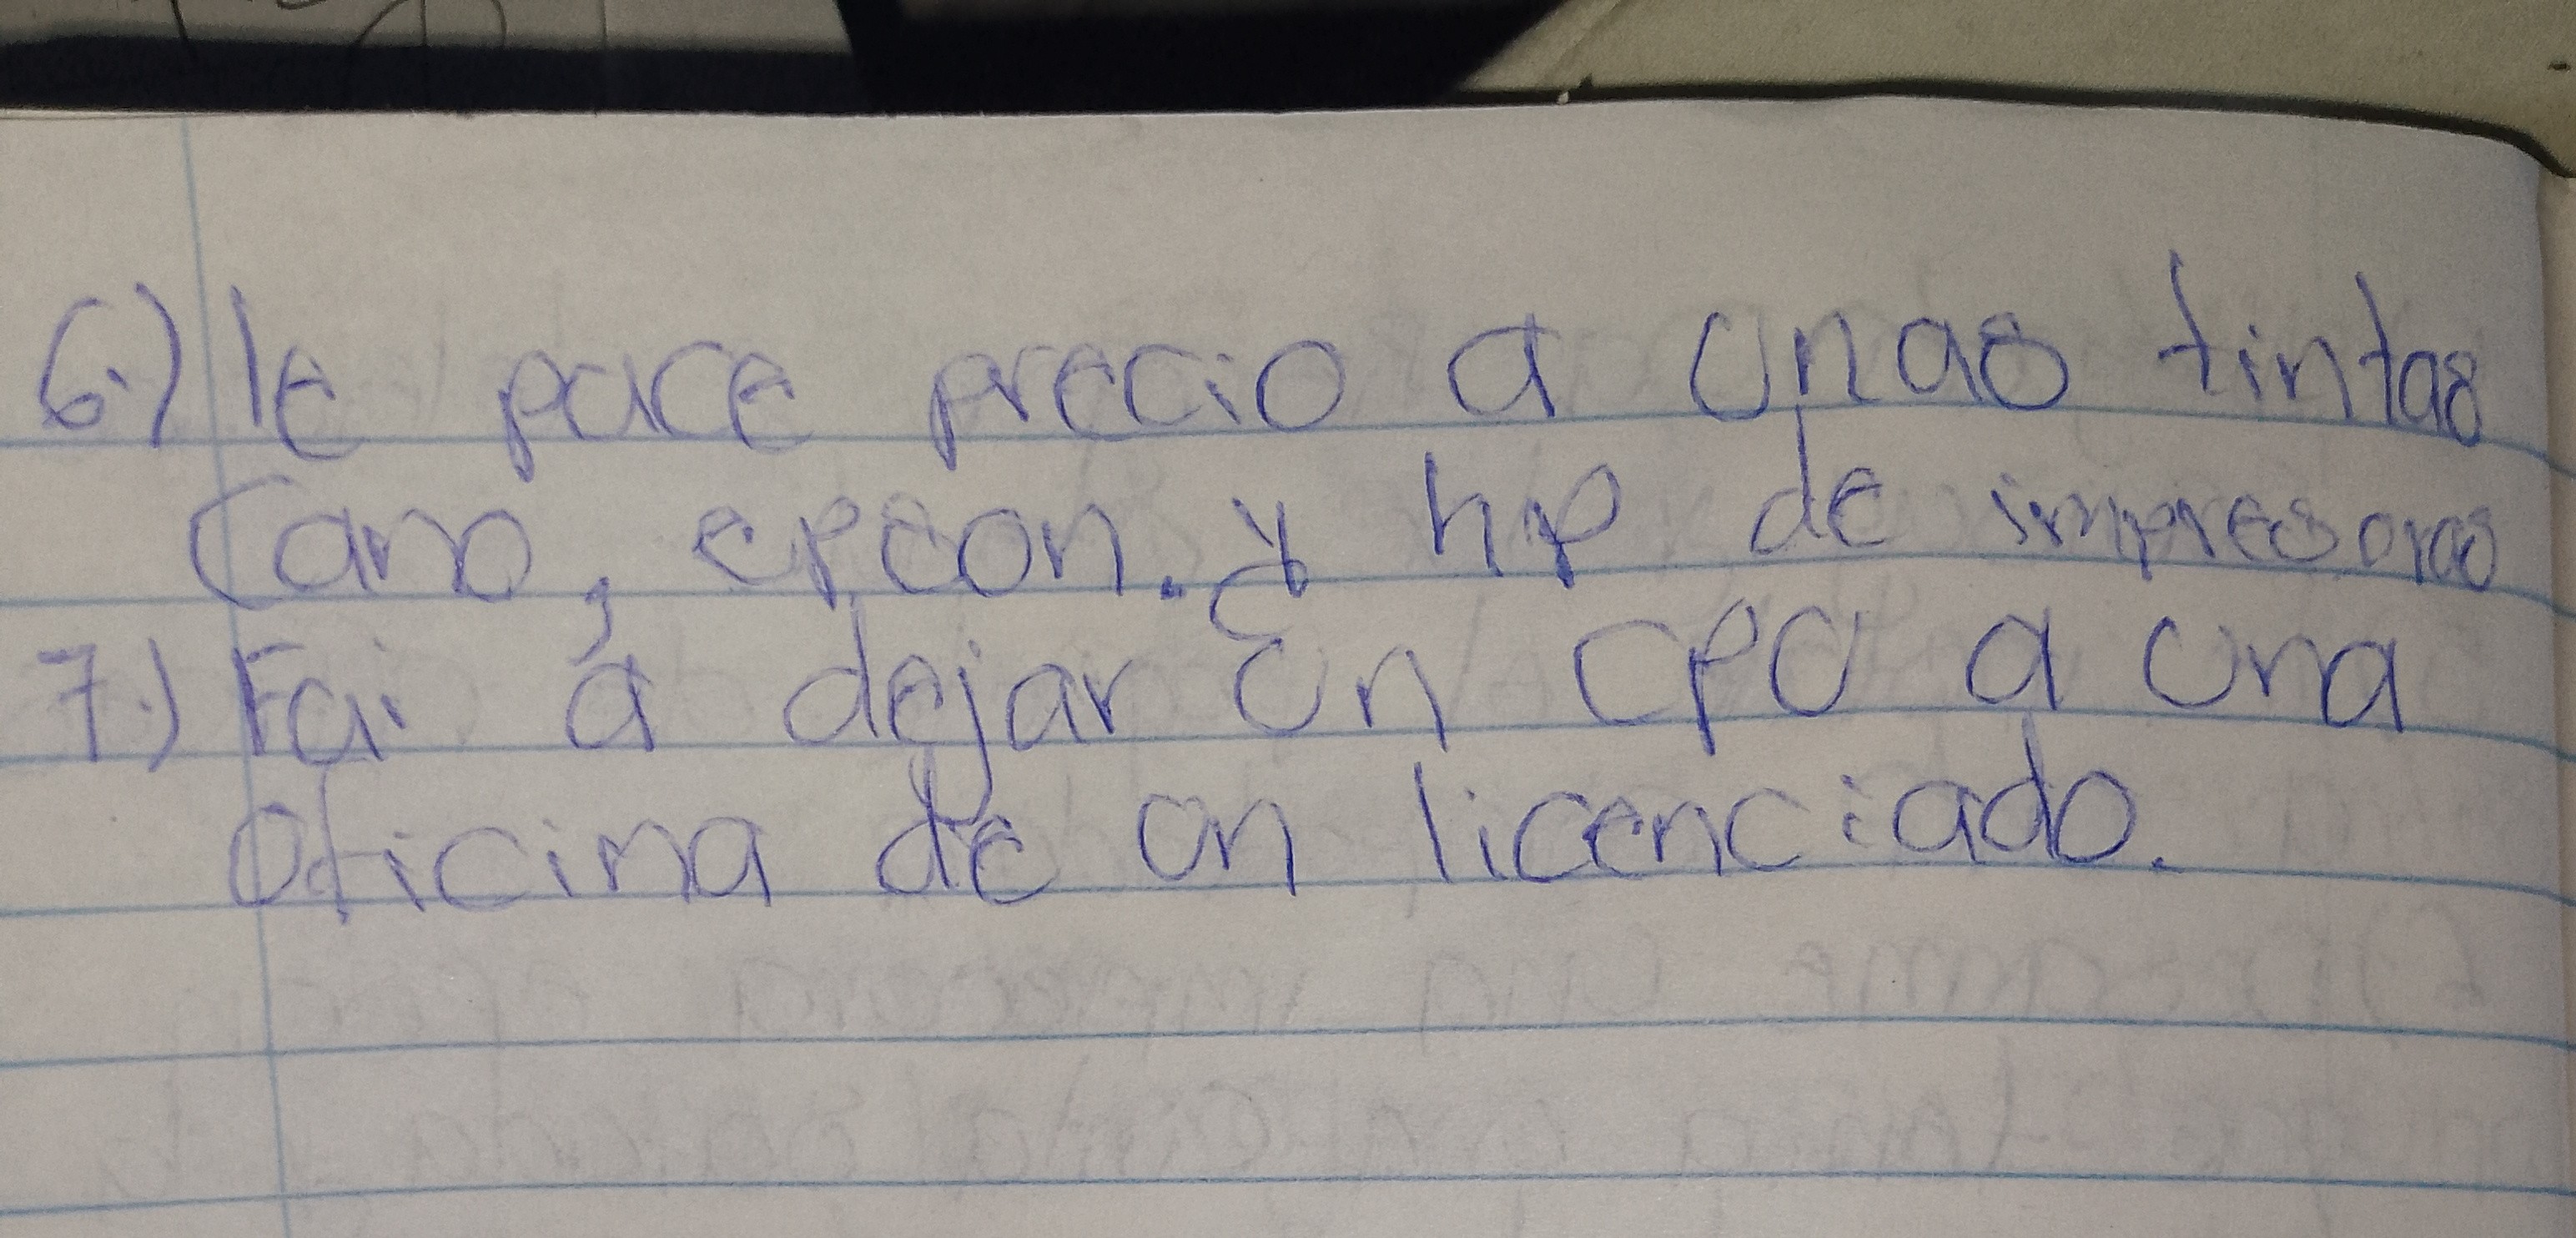 6.) le puce precio a unas tintas
Cano, epcon. y hp de impresoras
7.) Fui a dejar un CPU a una
oficina de un licenciado.